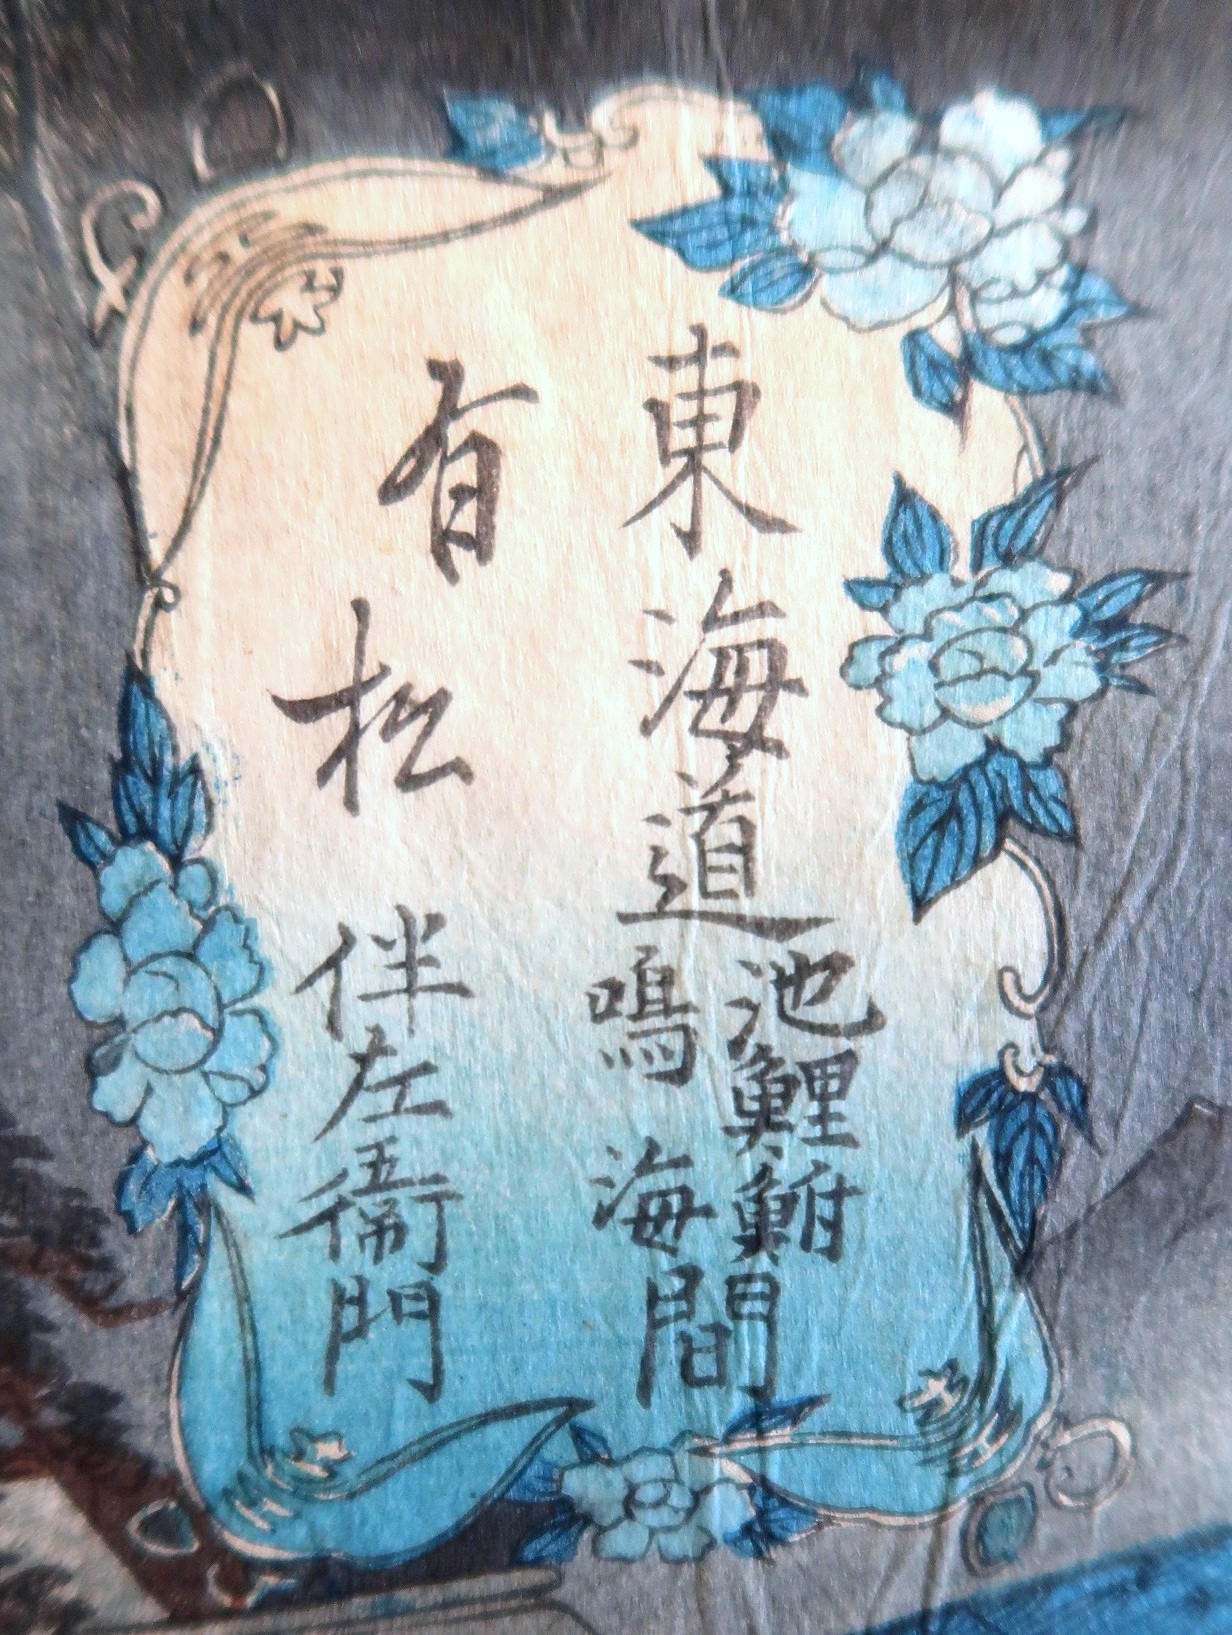 東海道
池鯉鮒
鳴海
間
有松
伴左衛門